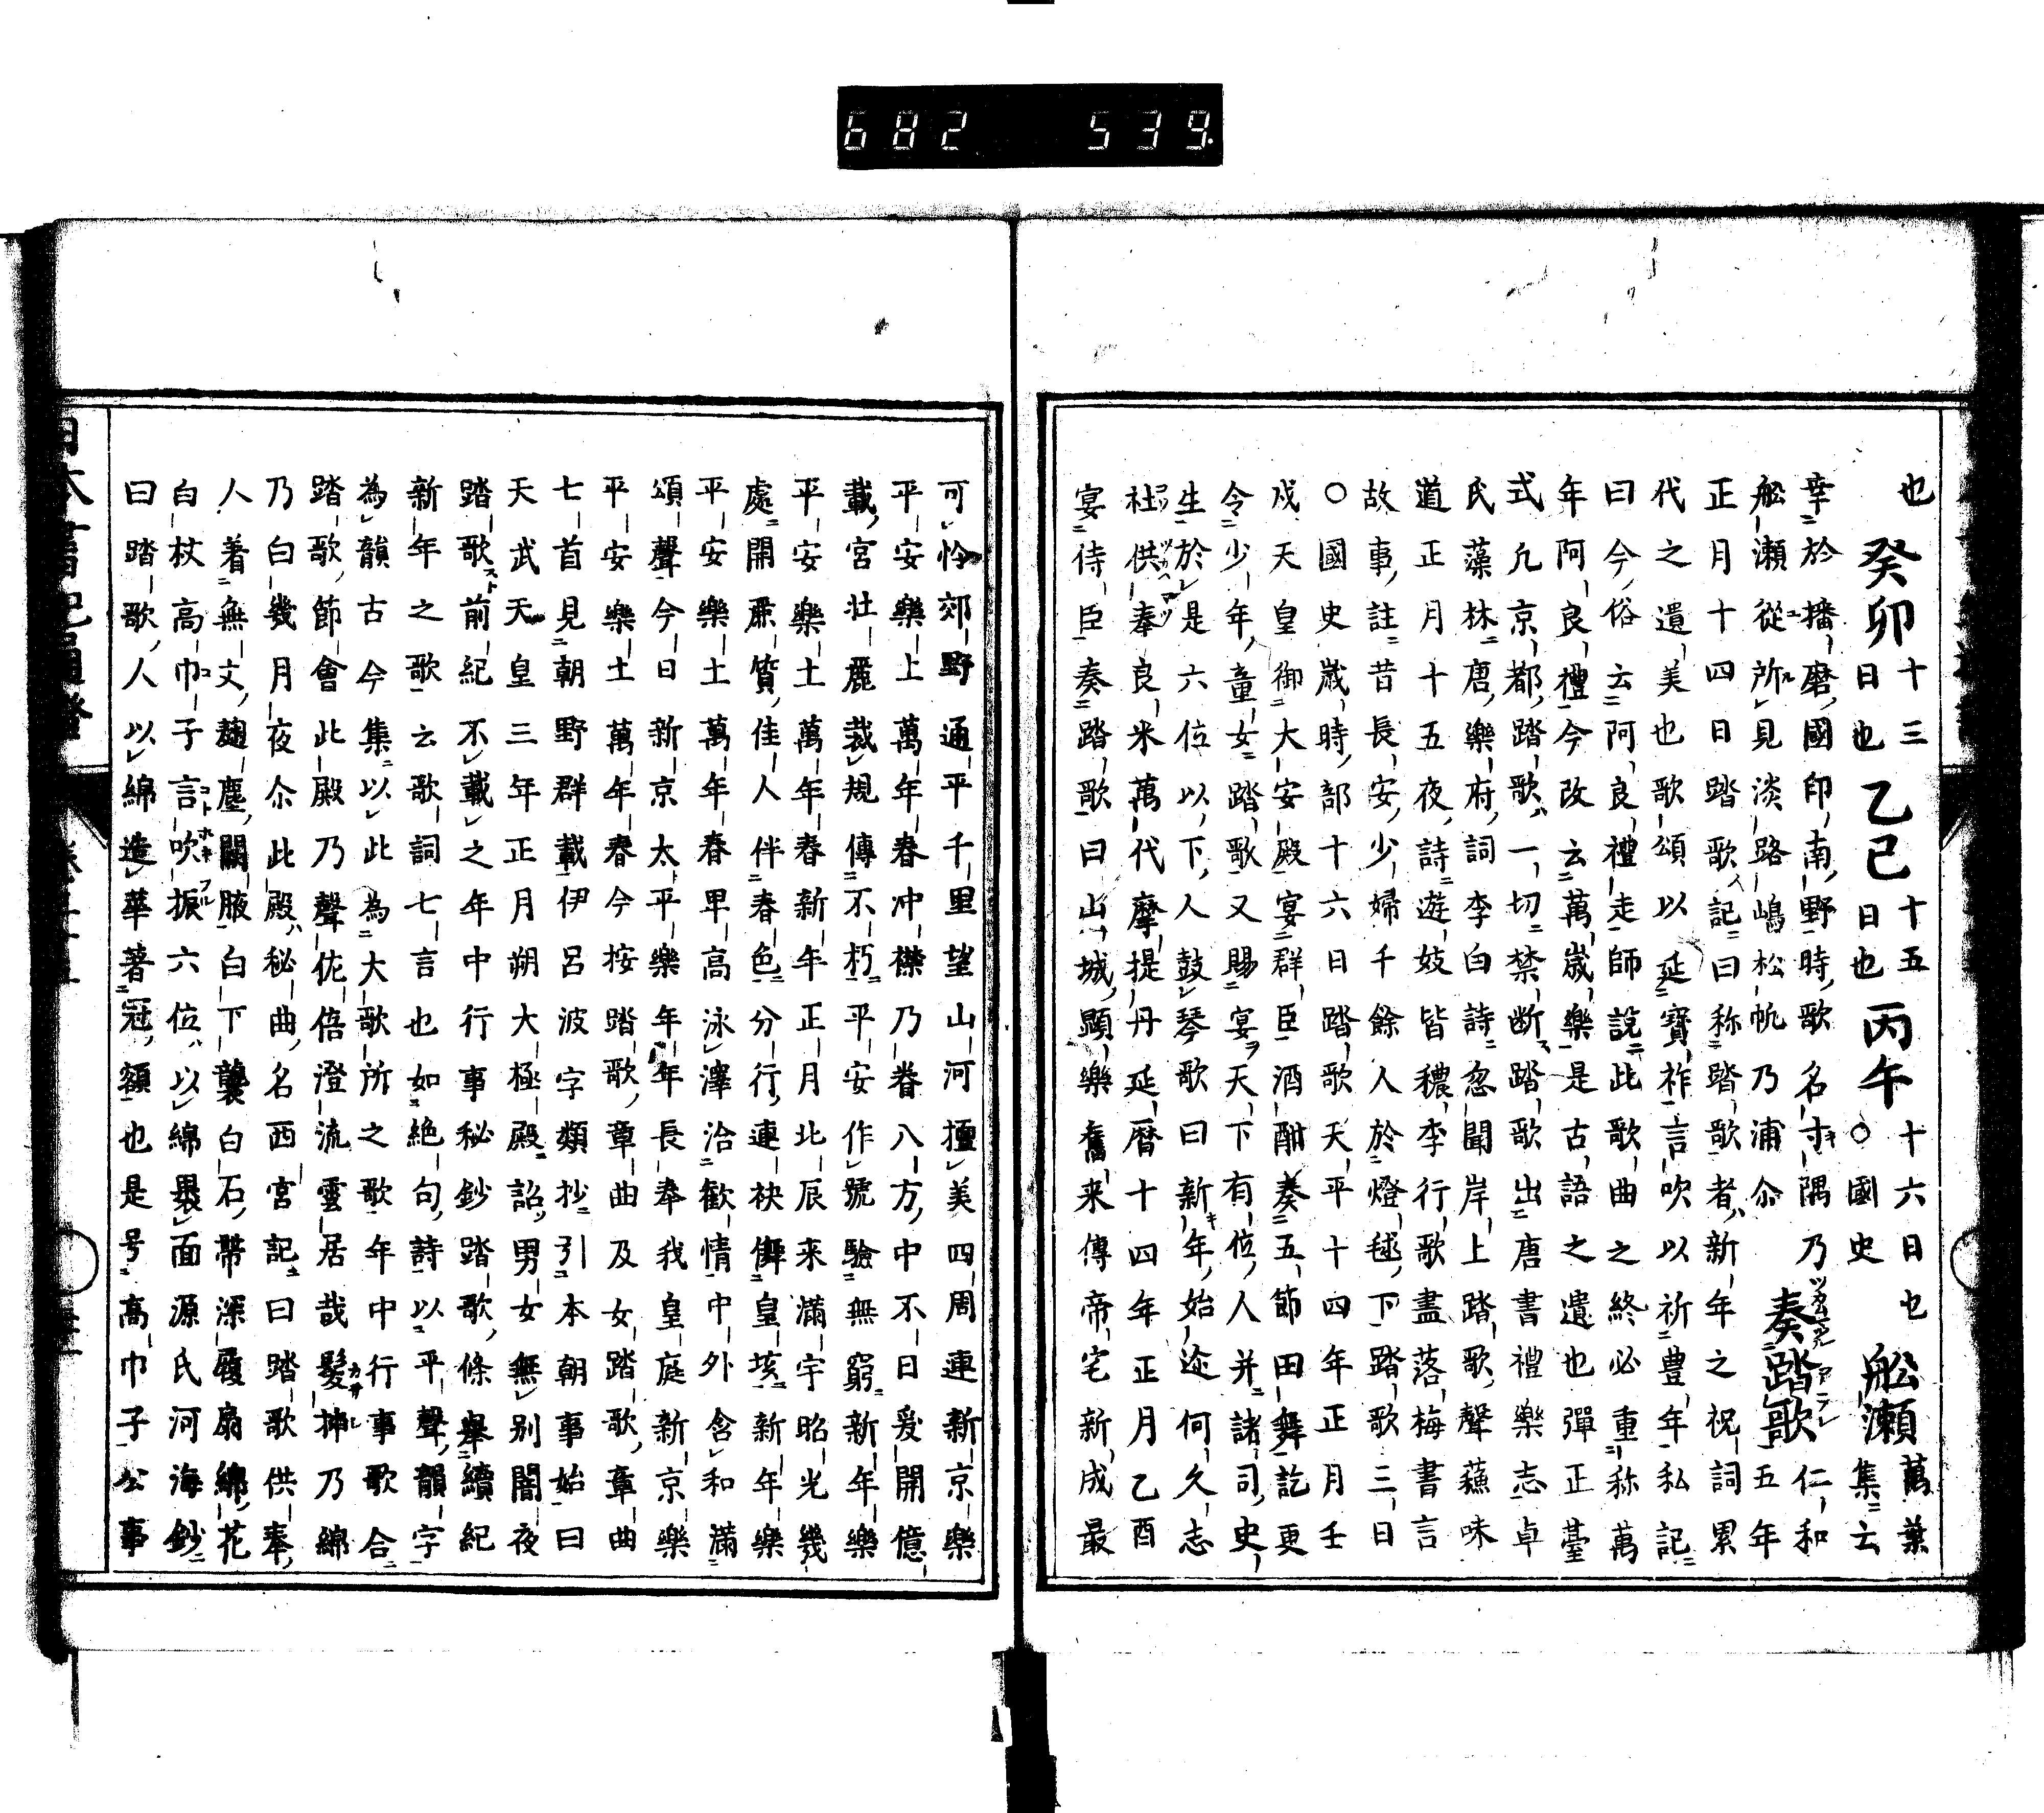 682 539.
也癸卯十三日也乙巳十五日也丙午十六日也○國史舩瀬萬葉集云
幸於播磨國印南野時歌名寸隅乃
舩瀬從所見淡路嶋松帆乃浦尓
奏踏歌仁和五年
正月十四日踏歌記曰称踏歌者新年之祝詞累
代之遺美也歌頌以延寶祚言吹以祈豊年私記
曰今俗云阿良禮走師說此歌曲之終必重称萬
年阿良禮今改云萬歳樂是古語之遺也彈正臺
式凢京都踏歌一切禁断踏歌出唐書禮樂志卓
氏藻林唐樂府詞李白詩忽聞岸上踏歌聲蘓味
道正月十五夜詩遊妓皆穠李行歌盡落梅書言
故事註昔長安少婦千餘人於燈毬下踏歌三日
○國史歳時部十六日踏歌天平十四年正月壬
戍天皇御大安殿宴群臣酒酣奏五節田舞訖更
令少年童女踏歌又賜宴天下有位人并諸司史
生於是六位以下人鼓琴歌曰新年始迩何久志
社供奉良米萬代摩提丹延暦十四年正月乙酉
宴侍臣奏踏歌曰山城顯樂舊来傳帝宅新成最
可怜郊野通平千里望山河擅美四周連新京樂
平安樂土萬年春冲襟乃眷八方中不日爰開億
載宮壮麗裁規傳不朽平安作號驗無窮新年樂
平安樂土萬年春新年正月北辰来滿宇昭光幾
處開麗質佳人伴春色分行連袂儛皇垓新年樂
平安樂土萬年春早高泳澤洽歡情中外含和滿
頌聲今日新京太平樂年年長奉我皇庭新京樂
平安樂土萬年春今按踏歌章曲及女踏歌章曲
七首見朝野群載伊呂波字類抄引本朝事始曰
天武天皇三年正月朔大極殿詔男女無别闇夜
踏歌前紀不載之年中行事秘鈔踏歌條舉續紀
新年之歌云歌詞七言也如絶句詩以平聲韻字
為韻古今集以此為大歌所之歌年中行事歌合
踏歌節會此殿乃聲佐倍澄流雲居哉髮挿乃綿
乃白幾月夜尓此殿秘曲名西宮記曰踏歌供奉
人着無文麹塵闕腋白下襲白石帶深履扇綿花
白杖高巾子言吹振六位以綿裹面源氏河海鈔
曰踏歌人以綿造華著冠額也是号高巾子公事